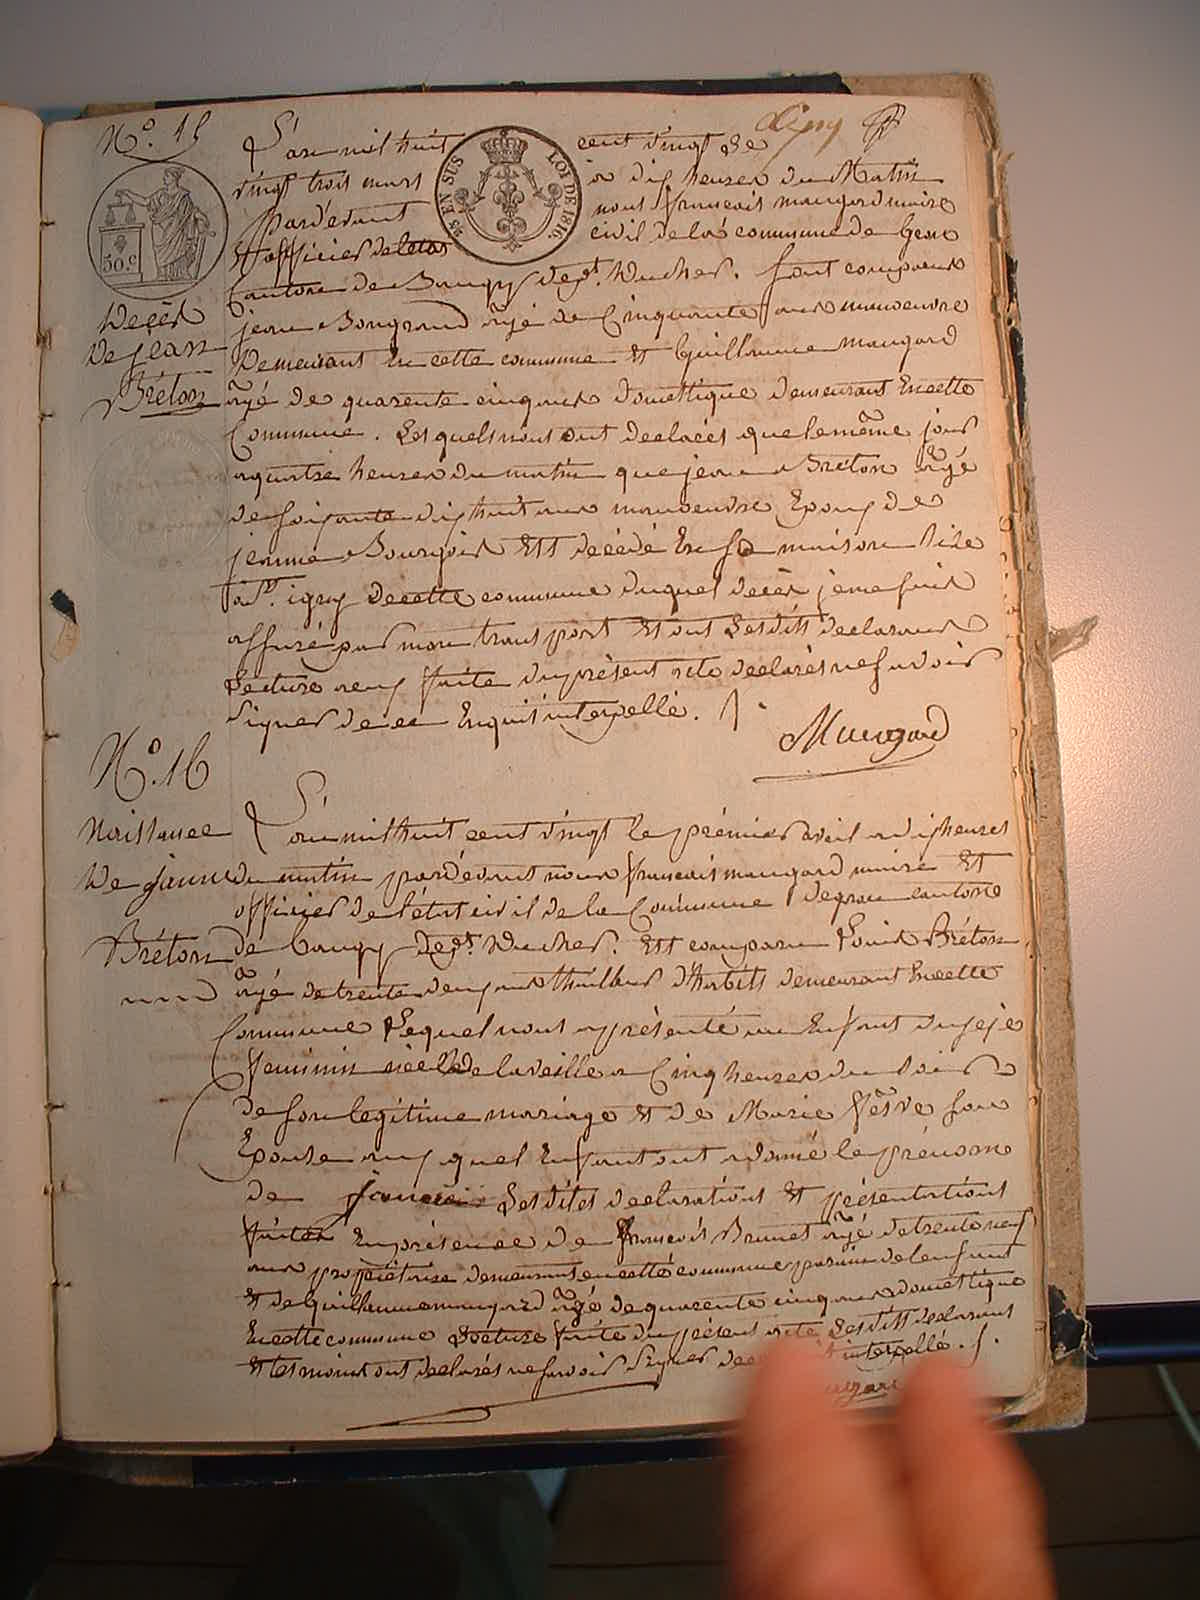 N.o 15
L'an mil huit cent vingt le
vingt trois mars à dix heures du Matin
pardevant nous françois maugard maire
et officier de letat civil de la commune de Gron
Cantone de Baugy Dept. Ducher. sont comparus
jean Bongrand agé de Cinquante ans manoeuvre
Demeurant En cette commune et Guillaume maugard
agé de quarente cinq ans domestique demeurant En cette
Commune. Lesquels nous ont declarés que le même jour
a quatre heures du matin que jean Bréton agé
de soixante dix huit ans manoeuvre Epoux de
jeanne Bourgois Est décédé En sa maison size
à St. igny de cette commune duquel decès je me suis
assuré par mon transport et ont Lesdits declarants
Lecture aux faite du présent acte declarés ne savoir
signer de ce Enquis interpellé. /.
Maugard
50.c
25.c EN SUS
LOI DE 1816.
Decès
De jean
Bréton
N.o 16
Naissance
De janne
Bréton
L'an mil huit cent vingt le prémier avril a dix heures
du matin pardevant nous françois maugard maire et
officier de l'état civil de la Commune de gron cantone
de baugy Dept. Ducher. Est comparu Louis Bréton
agé de trente deux ans thailleur d'habits demeurant En cette
Commune Lequel nous a présenté un Enfant du sexe
feminin née de la veille a Cinq heures du soir
de son legitime mariage et de Marie son
Epouse auquel Enfant ont a donné le prénom
de Lesdites declarations et présentations
faites En présence de françois Brunet agé de trente neuf
ans propriétaire demeurant en cette commune parain de lenfant
et de Guillaume maugard agé de quarente cinq ans domestique
En cette commune Lecture faite du présent acte Lesdits declarant
et temoins ont declarés ne savoir Signer de interpellé. /.